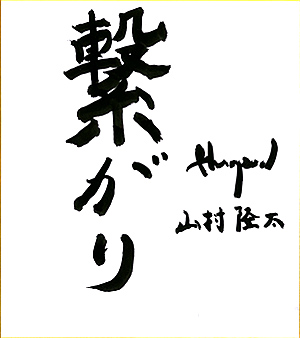 繋がり
山村隆太